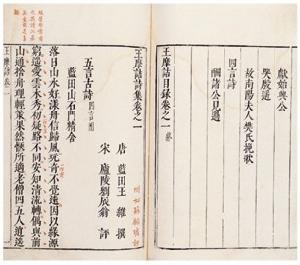 獻始興公
哭殷遙
故南陽夫人樊氏挽歌
四言詩
酬諸公見過
王摩詰詩目錄卷之一 終
王摩詰詩集卷之一
唐 藍田王維 撰
宋 廬陵劉辰翁 評
五言古詩
藍田山石門精舍
落日山水好漾舟信歸風奇不覺遠因以緣源
窮遙愛雲木秀初疑路不同安知清流轉偶與前
山通捨舟理輕策果然愜所適老僧四五人逍遙
王摩詩 卷一